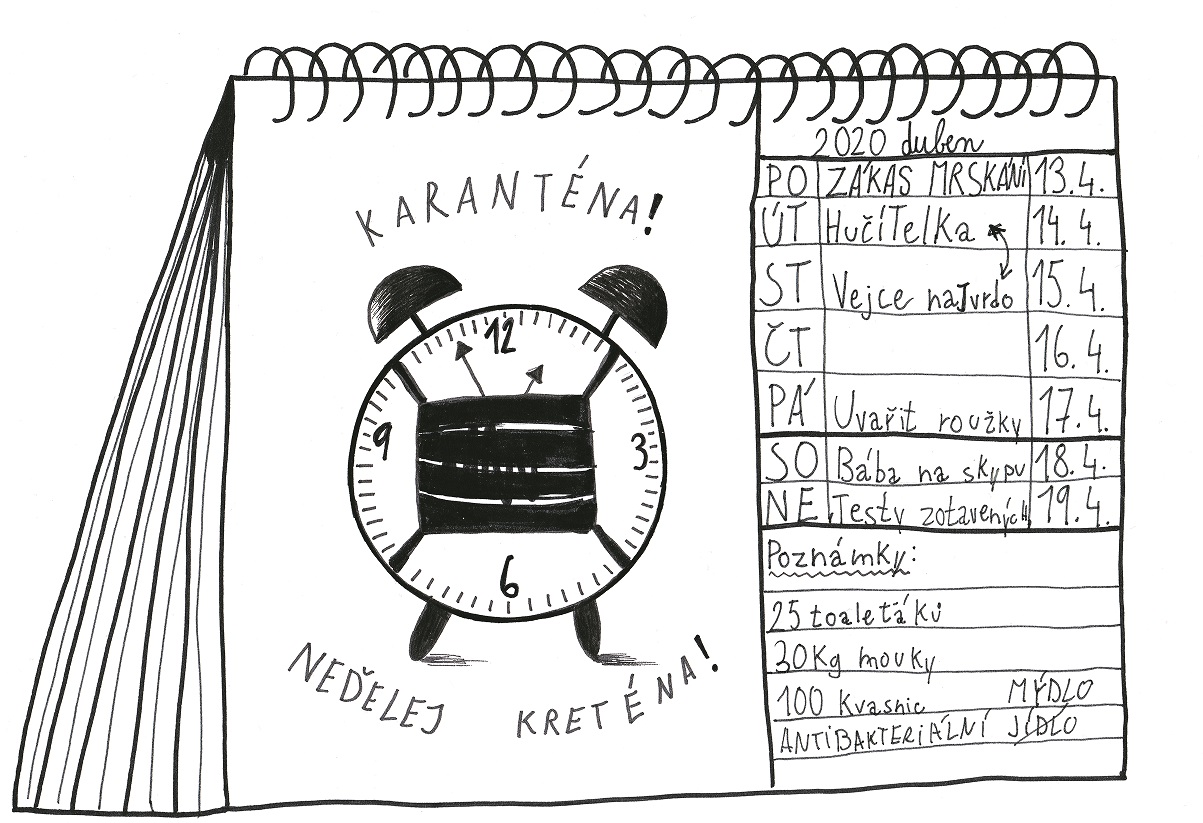 KARANTÉNA!
12
9
3
6
NEDĚLEJ KRETÉNA!
2020 duben
PO ZÁKAS MRSKÁNÍ 13.4.
ÚT HučíTelKa 14.4.
ST Vejce naTvrdo 15.4.
ČT 16.4.
PÁ Uvařit roužky 17.4.
SO Bába na skypu 18.4.
NE Testy zotavených 19.4.
Poznámky:
25 toaleťáků
30Kg mouky
100 Kvasnic MÝDLO
ANTIBAKTERIÁLNÍ JÍDLO